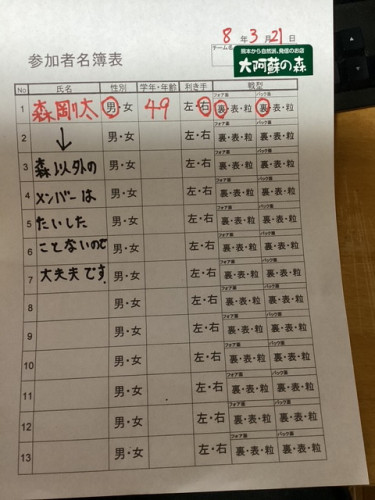 8年3月21日
参加者名簿表
チーム名
熊本から自然派、発信のお店
大阿蘇の森
No 氏名 性別 学年・年齢 利き手 戦型
フォア面 バック面
1 森 剛太 男・女 49 左・右 裏・表・粒 裏・表・粒
フォア面 バック面
2 ↓ 男・女 左・右 裏・表・粒 裏・表・粒
フォア面 バック面
3 森以外の 男・女 左・右 裏・表・粒 裏・表・粒
フォア面 バック面
4 メンバーは 男・女 左・右 裏・表・粒 裏・表・粒
フォア面 バック面
5 たいした 男・女 左・右 裏・表・粒 裏・表・粒
フォア面 バック面
6 ことないので 男・女 左・右 裏・表・粒 裏・表・粒
フォア面 バック面
7 大夫夫です。 男・女 左・右 裏・表・粒 裏・表・粒
フォア面 バック面
8 男・女 左・右 裏・表・粒 裏・表・粒
フォア面 バック面
9 男・女 左・右 裏・表・粒 裏・表・粒
フォア面 バック面
10 男・女 左・右 裏・表・粒 裏・表・粒
フォア面 バック面
11 男・女 左・右 裏・表・粒 裏・表・粒
フォア面 バック面
12 男・女 左・右 裏・表・粒 裏・表・粒
フォア面 バック面
13 男・女 左・右 裏・表・粒 裏・表・粒